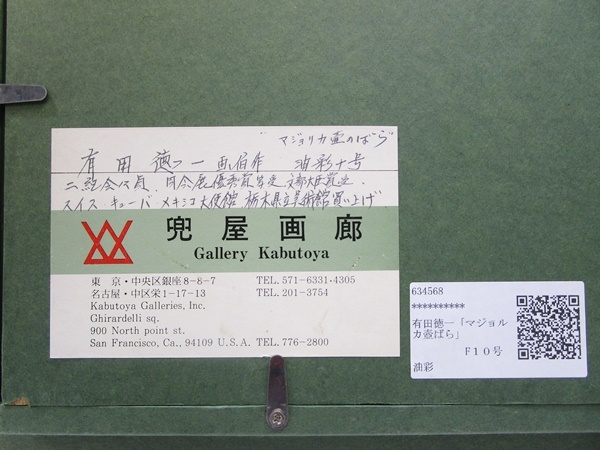 "マジョリカ壷のばら"
有田 徳一 画伯作 油彩十号
二紀会々員、同会展優秀賞受賞、文部大臣賞受、
スイス、キューバ、メキシコ大使館、栃木県立美術館買い上げ、
兜屋画廊
Gallery Kabutoya
東 京・中央区銀座8-8-7 TEL.571-6331・4305
名古屋・中区栄1-17-13 TEL.201-3754
Kabutoya Galleries, Inc.
Ghirardelli sq.
900 North point st.
San Francisco, Ca., 94109 U.S.A. TEL.776-2800
634568
**********
有田徳一「マジョル
カ壺ばら」
F10号
油彩